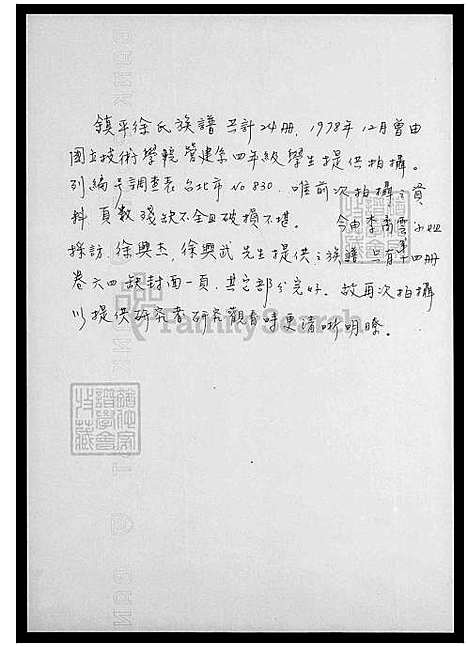 鎮平徐氏族譜 共計24冊, 1978年12月曾由
國立技術學院營建系四年級學生提供拍攝。
列編号調查表台北市No 830. 唯前次拍攝之資
料 頁數殘缺不全且破損不堪。 今由李 雲小姐
採訪、徐興杰, 徐興武 先生提供之族譜 四冊
卷六四缺封面一頁, 其它部分完好。故再次拍攝
以提供研究者研究觀看時更清晰明瞭。
FamilySearch